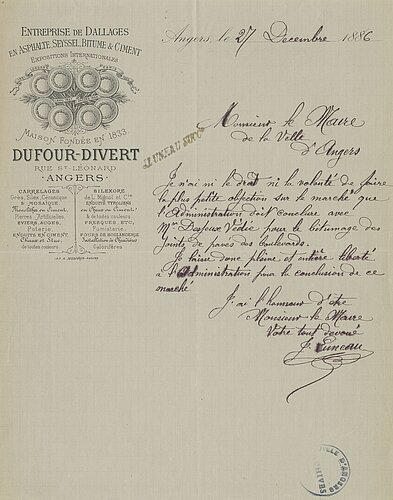 ENTREPRISE DE DALLAGES
EN ASPHALTE, SEYSSEL, BITUME & CIMENT
EXPOSITIONS INTERNATIONALES
MAISON FONDÉE EN 1833
DUFOUR-DIVERT
RUE ST LÉONARD
- ANGERS -
CARRELAGES
Grès, Silex, Céramique
& MOSAÏQUE
Pierres Artificielles
EVIERS, AUGES,
Poterie,
ENDUITS EN CIMENT
Chaux et Stuc,
de toutes couleurs
SILEXORE
de L. Mignot et Cie
ENDUITS ITALIENS
& de toutes couleurs
FRESQUES, ETC,
Fumisterie,
FOURS DE BOULANGERIE
Installation de Chaudières
Calorifères
Angers, le 27 Decembre 1886
J. LUNEAU SUCR
Monsieur le Maire
de la Ville
d'Angers
Je n'ai ni le droit ni la volonté de faire
la plus petite objection sur le marché que
l'Administration doit conclure avec
Mr Desjeux Vedie pour le bitumage des
joints de pavés des boulevards.
Je laisse donc pleine et entière liberté
à l'Administration pour la conclusion de ce
marché
J'ai l'honneur d'être
Monsieur le Maire
Votre tout dévoué
J. Luneau
VILLE D'ANGERS
ARCHIVES